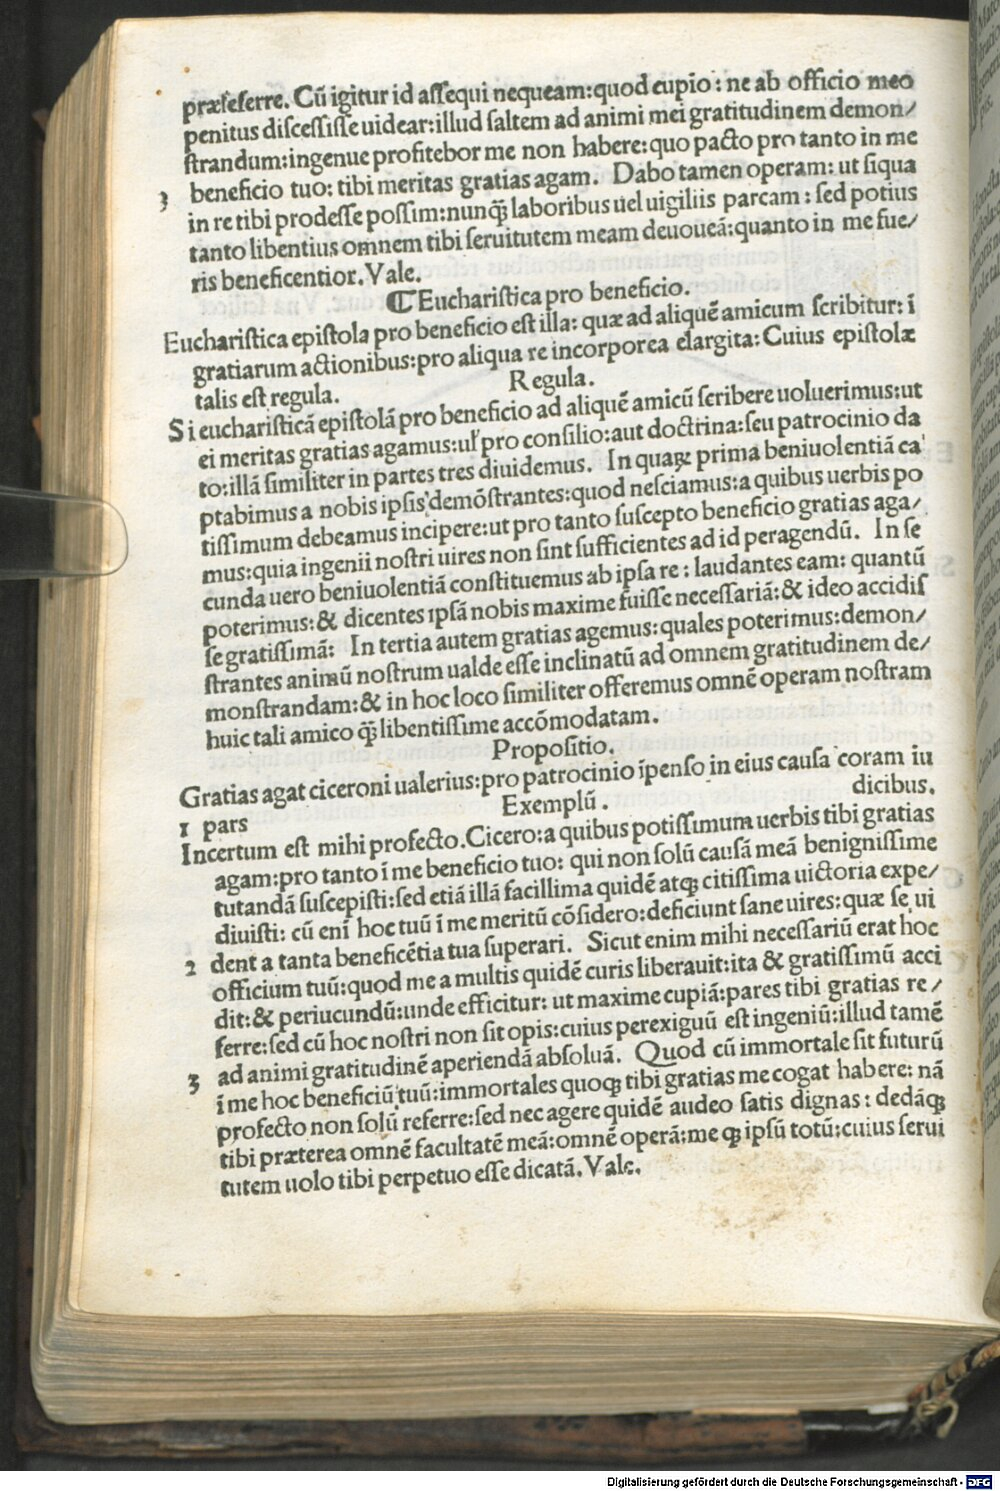 præſeferre. Cū igitur id aſſequi nequeam: quod cupio: ne ab officio meo
penitus diſceſſiſſe uidear: illud ſaltem ad animi mei gratitudinem demon/
ſtrandum: ingenue profitebor me non habere: quo pacto pro tanto in me
beneficio tuo: tibi meritas gratias agam. Dabo tamen operam: ut ſiqua
3 in re tibi prodeſſe poſſim: nunq̄ laboribus uel uigiliis parcam: ſed potius
tanto libentius omnem tibi ſeruitutem meam deuoueā: quanto in me fue/
ris beneficentior. Vale.
❡ Euchariſtica pro beneficio.
Euchariſtica epiſtola pro beneficio eſt illa: quæ ad aliquē amicum ſcribitur: ī
gratiarum actionibus: pro aliqua re incorporea elargita: Cuius epiſtolæ
talis eſt regula.
Regula.
Si euchariſticā epiſtolā pro beneficio ad aliquē amicū ſcribere uoluerimus: ut
ei meritas gratias agamus: uł pro conſilio: aut doctrina: ſeu patrocinio da
to: illā ſimiliter in partes tres diuidemus. In quaꝝ prima beniuolentiā ca
ptabimus a nobis ipſis demōſtrantes: quod neſciamus: a quibus uerbis po
tiſſimum debeamus incipere: ut pro tanto ſuſcepto beneficio gratias aga/
mus: quia ingenii noſtri uires non ſint ſufficientes ad id peragendū. In ſe
cunda uero beniuolentiā conſtituemus ab ipſa re: laudantes eam: quantū
poterimus: & dicentes ipſā nobis maxime fuiſſe neceſſariā: & ideo accidiſ
ſe gratiſſimā: In tertia autem gratias agemus: quales poterimus: demon/
ſtrantes animū noſtrum ualde eſſe inclinatū ad omnem gratitudinem de/
monſtrandam: & in hoc loco ſimiliter offeremus omnē operam noſtram
huic tali amico q̄ libentiſſime accōmodatam.
Propoſitio.
Gratias agat ciceroni ualerius: pro patrocinio īpenſo in eius cauſa coram iu
dicibus.
Exemplū.
1 pars
Incertum eſt mihi profecto. Cicero: a quibus potiſſimum uerbis tibi gratias
agam: pro tanto ī me beneficio tuo: qui non ſolū cauſā meā benigniſſime
tutandā ſuſcepiſti: ſed etiā illā facillima quidē atq; citiſſima uictoria expe/
diuiſti: cū enī hoc tuū ī me meritū cōſidero: deficiunt ſane uires: quæ ſe ui
2 dent a tanta beneficētia tua ſuperari. Sicut enim mihi neceſſariū erat hoc
officium tuū: quod me a multis quidē curis liberauit: ita & gratiſſimū acci
dit: & periucundū: unde efficitur: ut maxime cupiā: pares tibi gratias re/
ferre: ſed cū hoc noſtri non ſit opis: cuius perexiguū eſt ingeniū: illud tamē
3 ad animi gratitudinē aperiendā abſoluā. Quod cū immortale ſit futurū
ī me hoc beneficiū tuū: immortales quoq; tibi gratias me cogat habere: nā
profecto non ſolū referre: ſed nec agere quidē audeo ſatis dignas: dedāq;
tibi præterea omnē facultatē meā: omnē operā: me q; ipſū totū: cuius ſerui
tutem uolo tibi perpetuo eſſe dicatā. Vale.
Digitalisierung gefördert durch die Deutsche Forschungsgemeinschaft - DFG